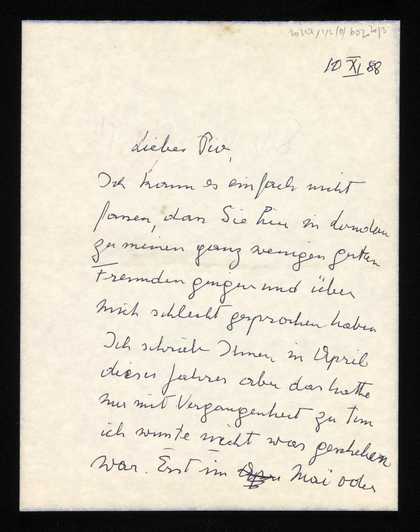 10 XI 88
Lieber Piv,
Ich kann es einfach nicht
fassen, dass Sie hier in London
zu meinen ganz wenigen guten
Freunden gingen und über
mich schlecht gesprochen haben
Ich schrieb Ihnen im April
dieses Jahres aber das hatte
nur mit Vergangenheit zu tun
ich wusste nicht was geschehen
war. Erst im Mai oder